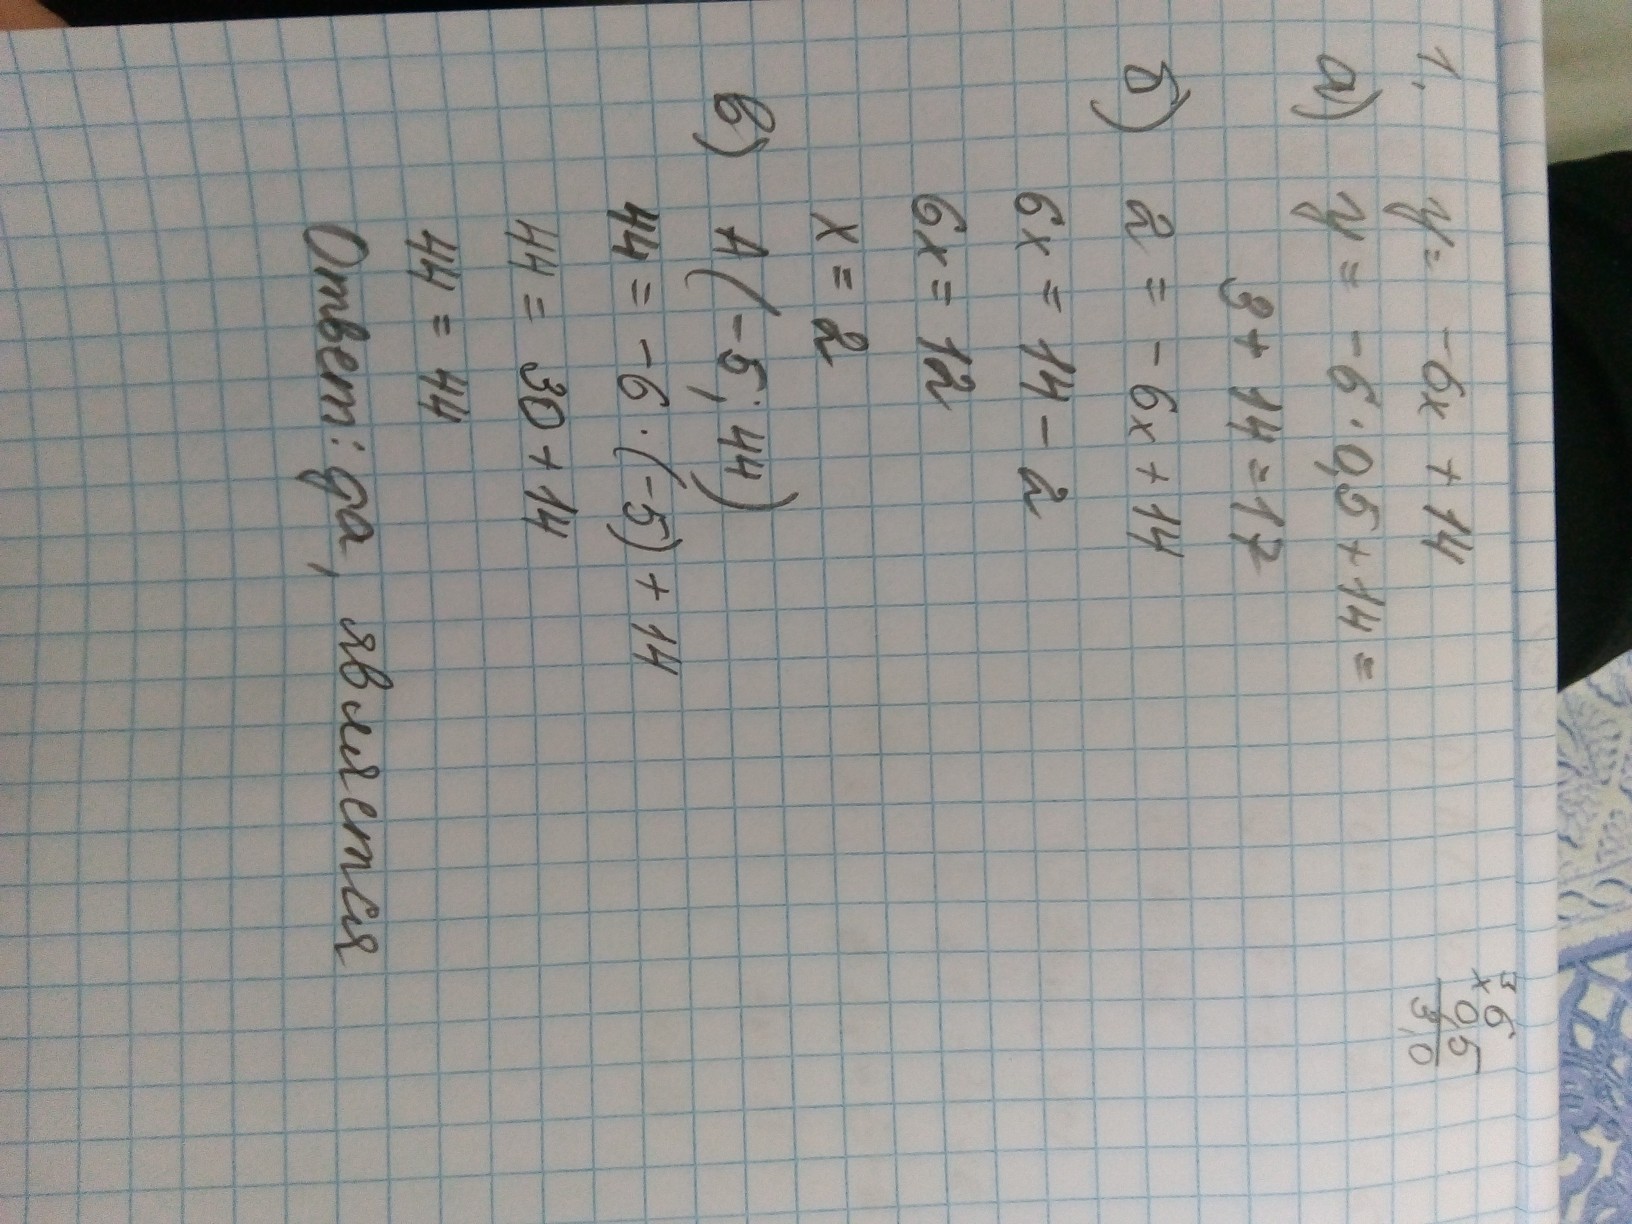 1. y = -6x + 14
а) y = -6 · 0,5 + 14 =
3 + 14 = 17
б) 2 = -6x + 14
6x = 14 - 2
6x = 12
x = 2
в) A (-5; 44)
44 = -6 · (-5) + 14
44 = 30 + 14
44 = 44
Ответ: да, является
3
6
x 0,5
3,0